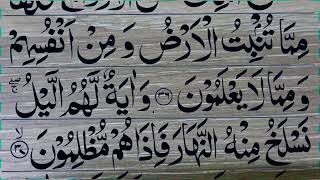 مِمَّا تُنْۢبِتُ الْاَرْضُ وَ مِنْ اَنْفُسِهِمْ
وَ مِمَّا لَا یَعْلَمُوْنَ ﴿۳۶﴾ وَ اٰیَةٌ لَّهُمُ الَّیْلُ
نَسْلَخُ مِنْهُ النَّهَارَ فَاِذَا هُمْ مُّظْلِمُوْنَ ﴿۳۷﴾